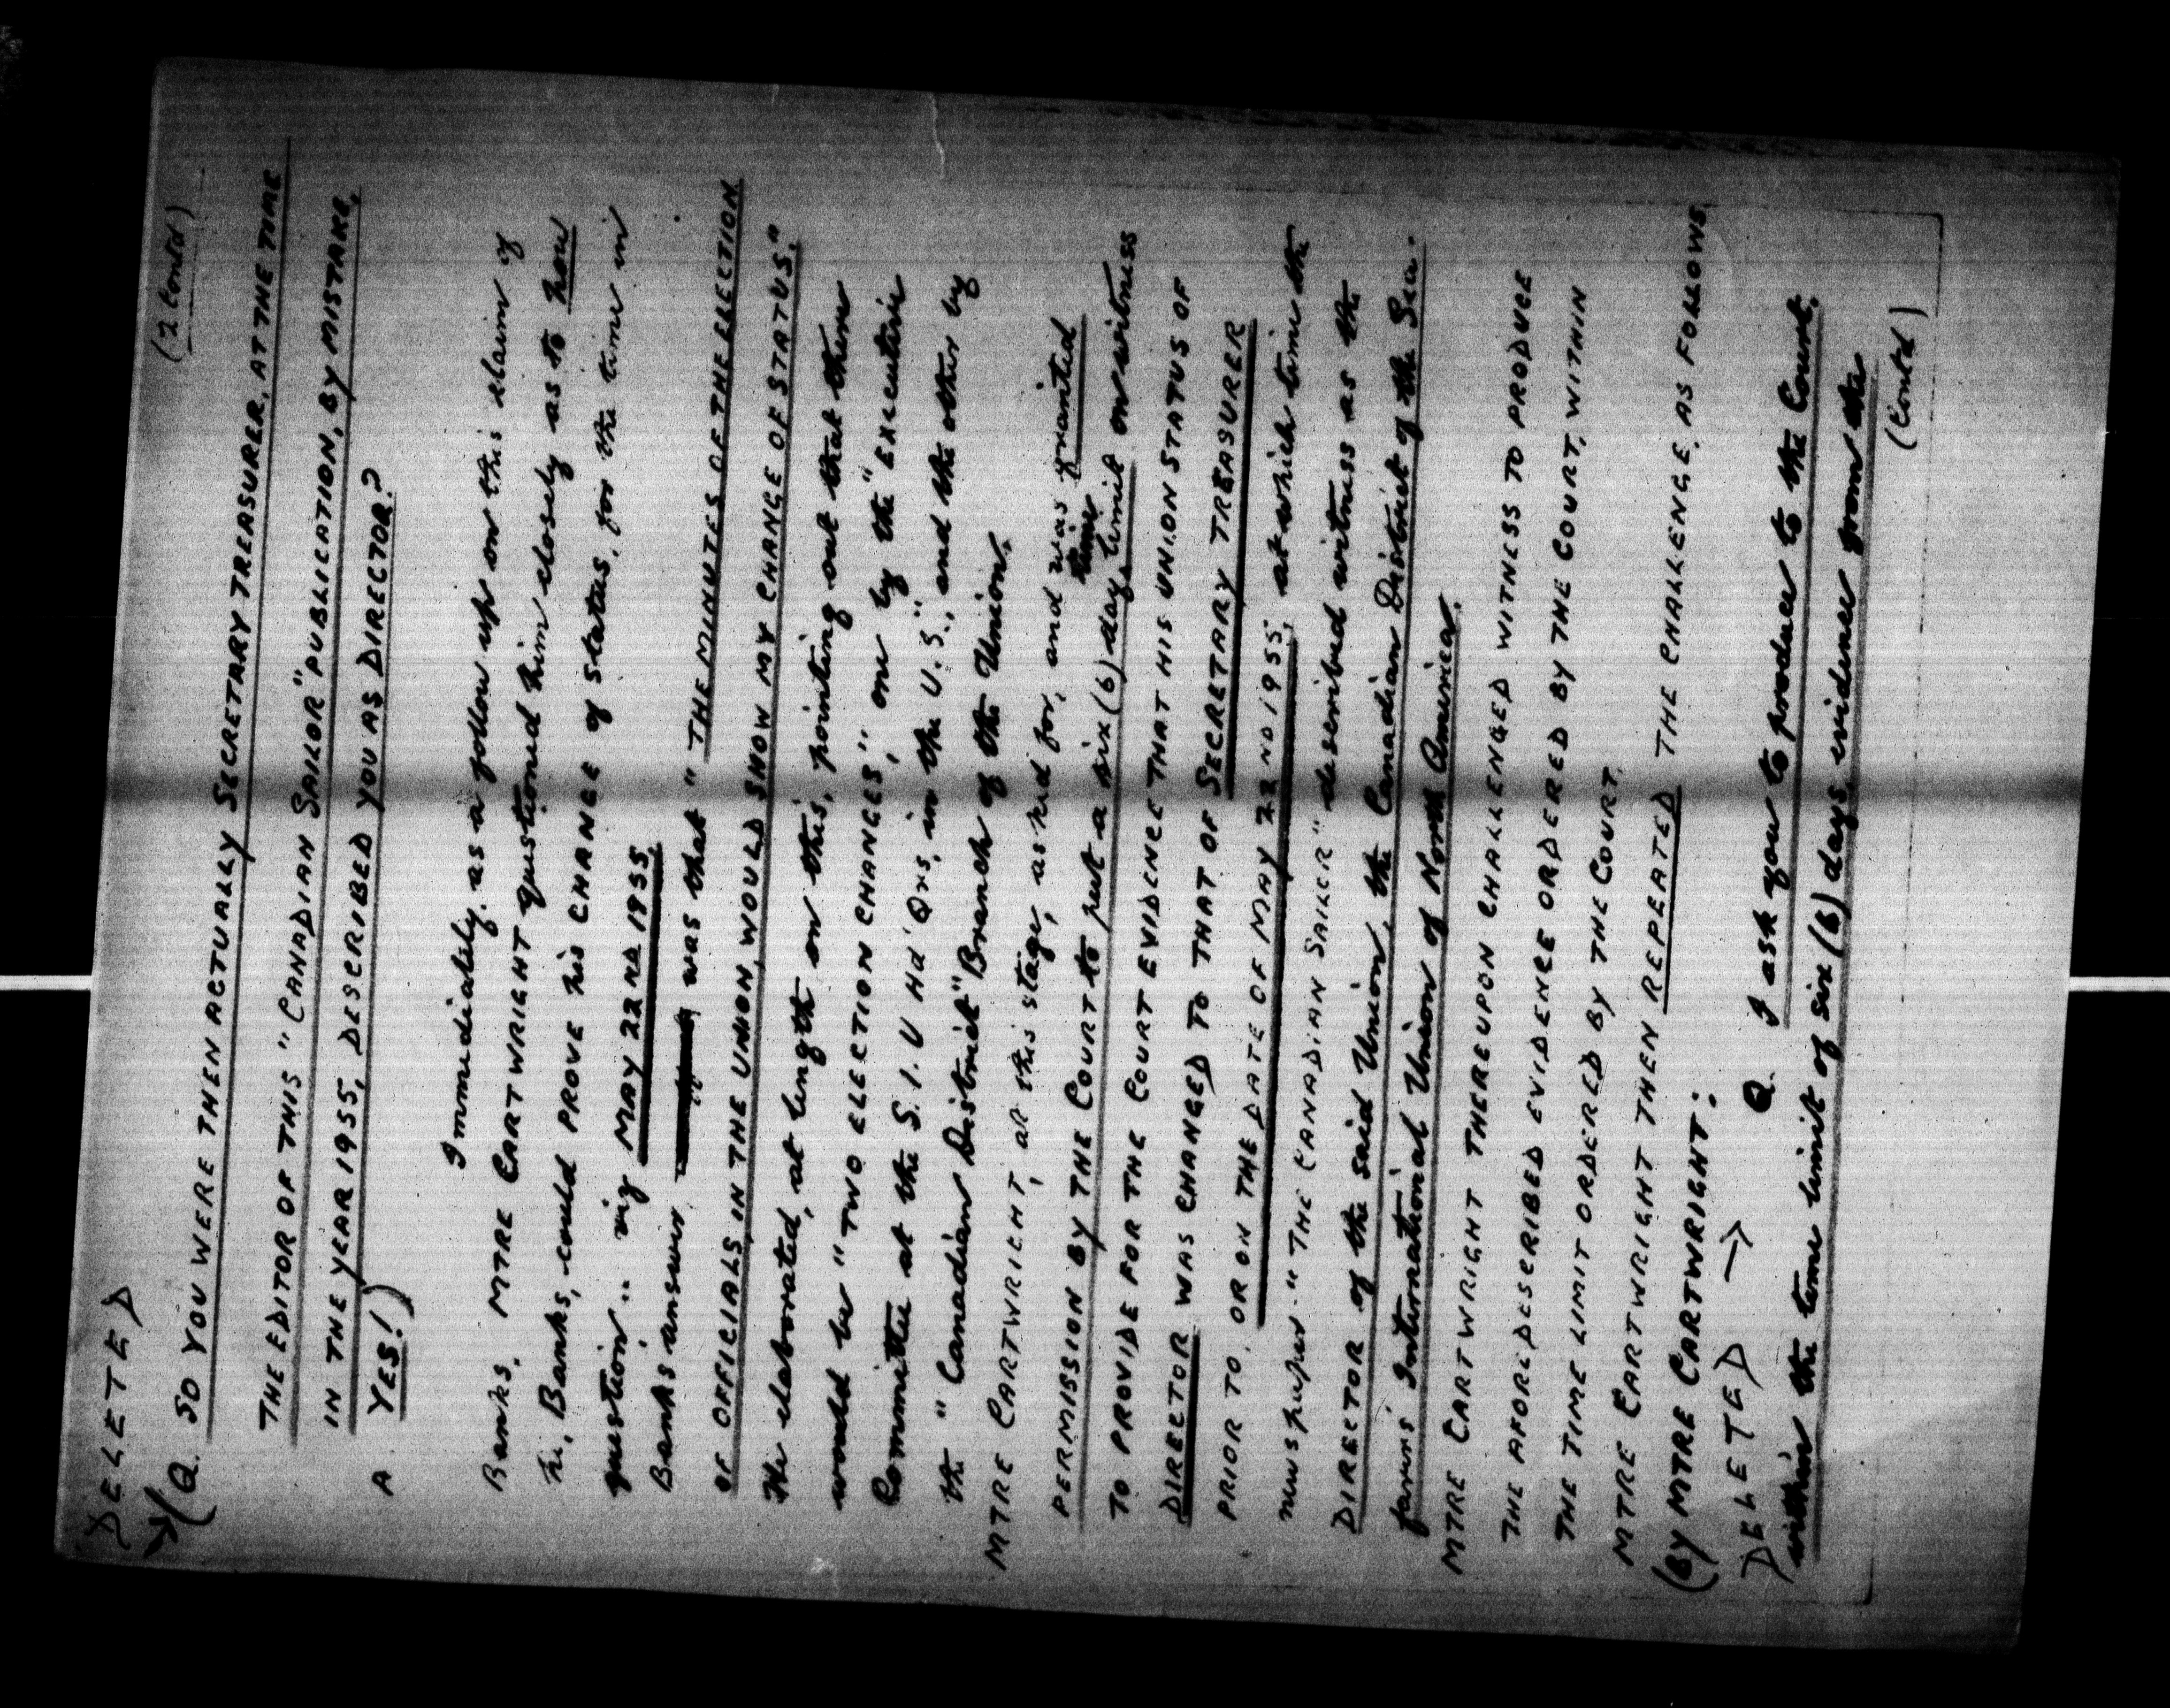 (2 Contd)
DELETED
→ (Q. SO YOU WERE THEN ACTUALLY SECRETARY TREASURER, AT THE TIME
THE EDITOR OF THIS "CANADIAN SAILOR" PUBLICATION, BY MISTAKE,
IN THE YEAR 1955, DESCRIBED YOU AS DIRECTOR?
A YES!)
Immediately, as a follow up on this claim of
Banks, MTRE CARTWRIGHT questioned him closely as to how
he, Banks, could PROVE his CHANGE of status, for the time in
question.. viz MAY 22ND 1955.
Banks answer was that "THE MINUTES OF THE ELECTION
OF OFFICIALS, IN THE UNION, WOULD SHOW MY CHANGE OF STATUS."
He elaborated, at length on this, pointing out that there
would be "TWO ELECTION CHANGES", one by the "EXECUTIVE
Committee at the S.I.U Hd'Qrs, in the U.S.", and the other by
the "Canadian District" Branch of the Union.
MTRE CARTWRIGHT, at this stage, asked for, and was granted
PERMISSION BY THE COURT to put a six (6) day time limit on witness
TO PROVIDE FOR THE COURT EVIDENCE THAT HIS UNION STATUS OF
DIRECTOR WAS CHANGED TO THAT OF SECRETARY TREASURER
PRIOR TO, OR ON THE DATE OF MAY 22ND 1955, at which time the
newspaper "THE CANADIAN SAILER" described witness as the
DIRECTOR of the said Union, the Canadian District of the Sea.
farers' International Union of North America.
MTRE CARTWRIGHT THEREUPON CHALLENGED WITNESS TO PRODUCE
THE AFOREDESCRIBED EVIDENCE ORDERED BY THE COURT, WITHIN
THE TIME LIMIT ORDERED BY THE COURT.
MTRE CARTWRIGHT THEN REPEATED THE CHALLENGE, AS FOLLOWS.
(BY MTRE CARTWRIGHT:
DELETED → Q. I ask you to produce to the Court,
within the time limit of six (6) days, evidence from the
(Contd)